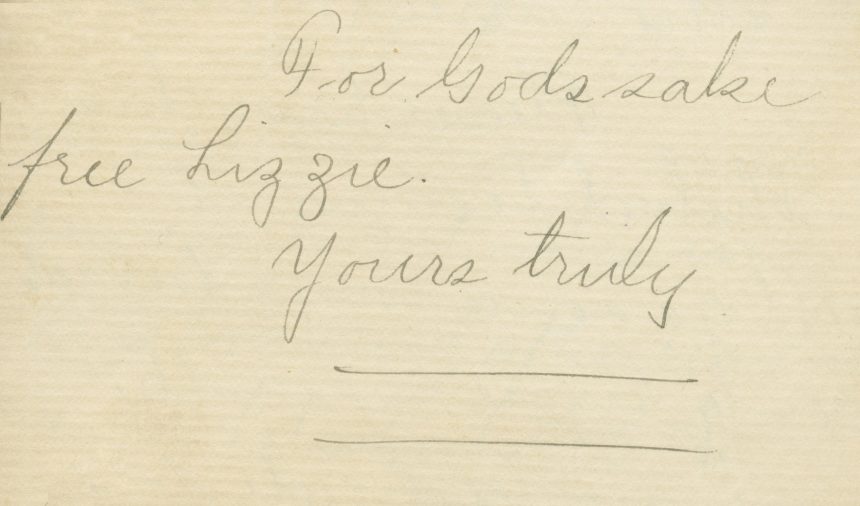 For Gods sake
free Lizzie.
Yours truly